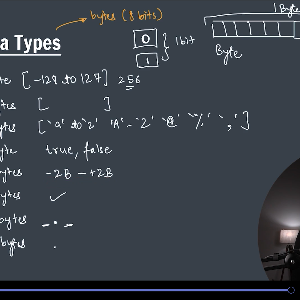 bytes (8 bits)
1 Byte
0
1
1 bit
Byte
a Types
te [-128 to 127] 256
tes [ ]
ytes ['a' to 'z' 'A'-'Z' '@' '%' ',']
yte true, false
ytes -2B - +2B
ytes
bytes
bytes